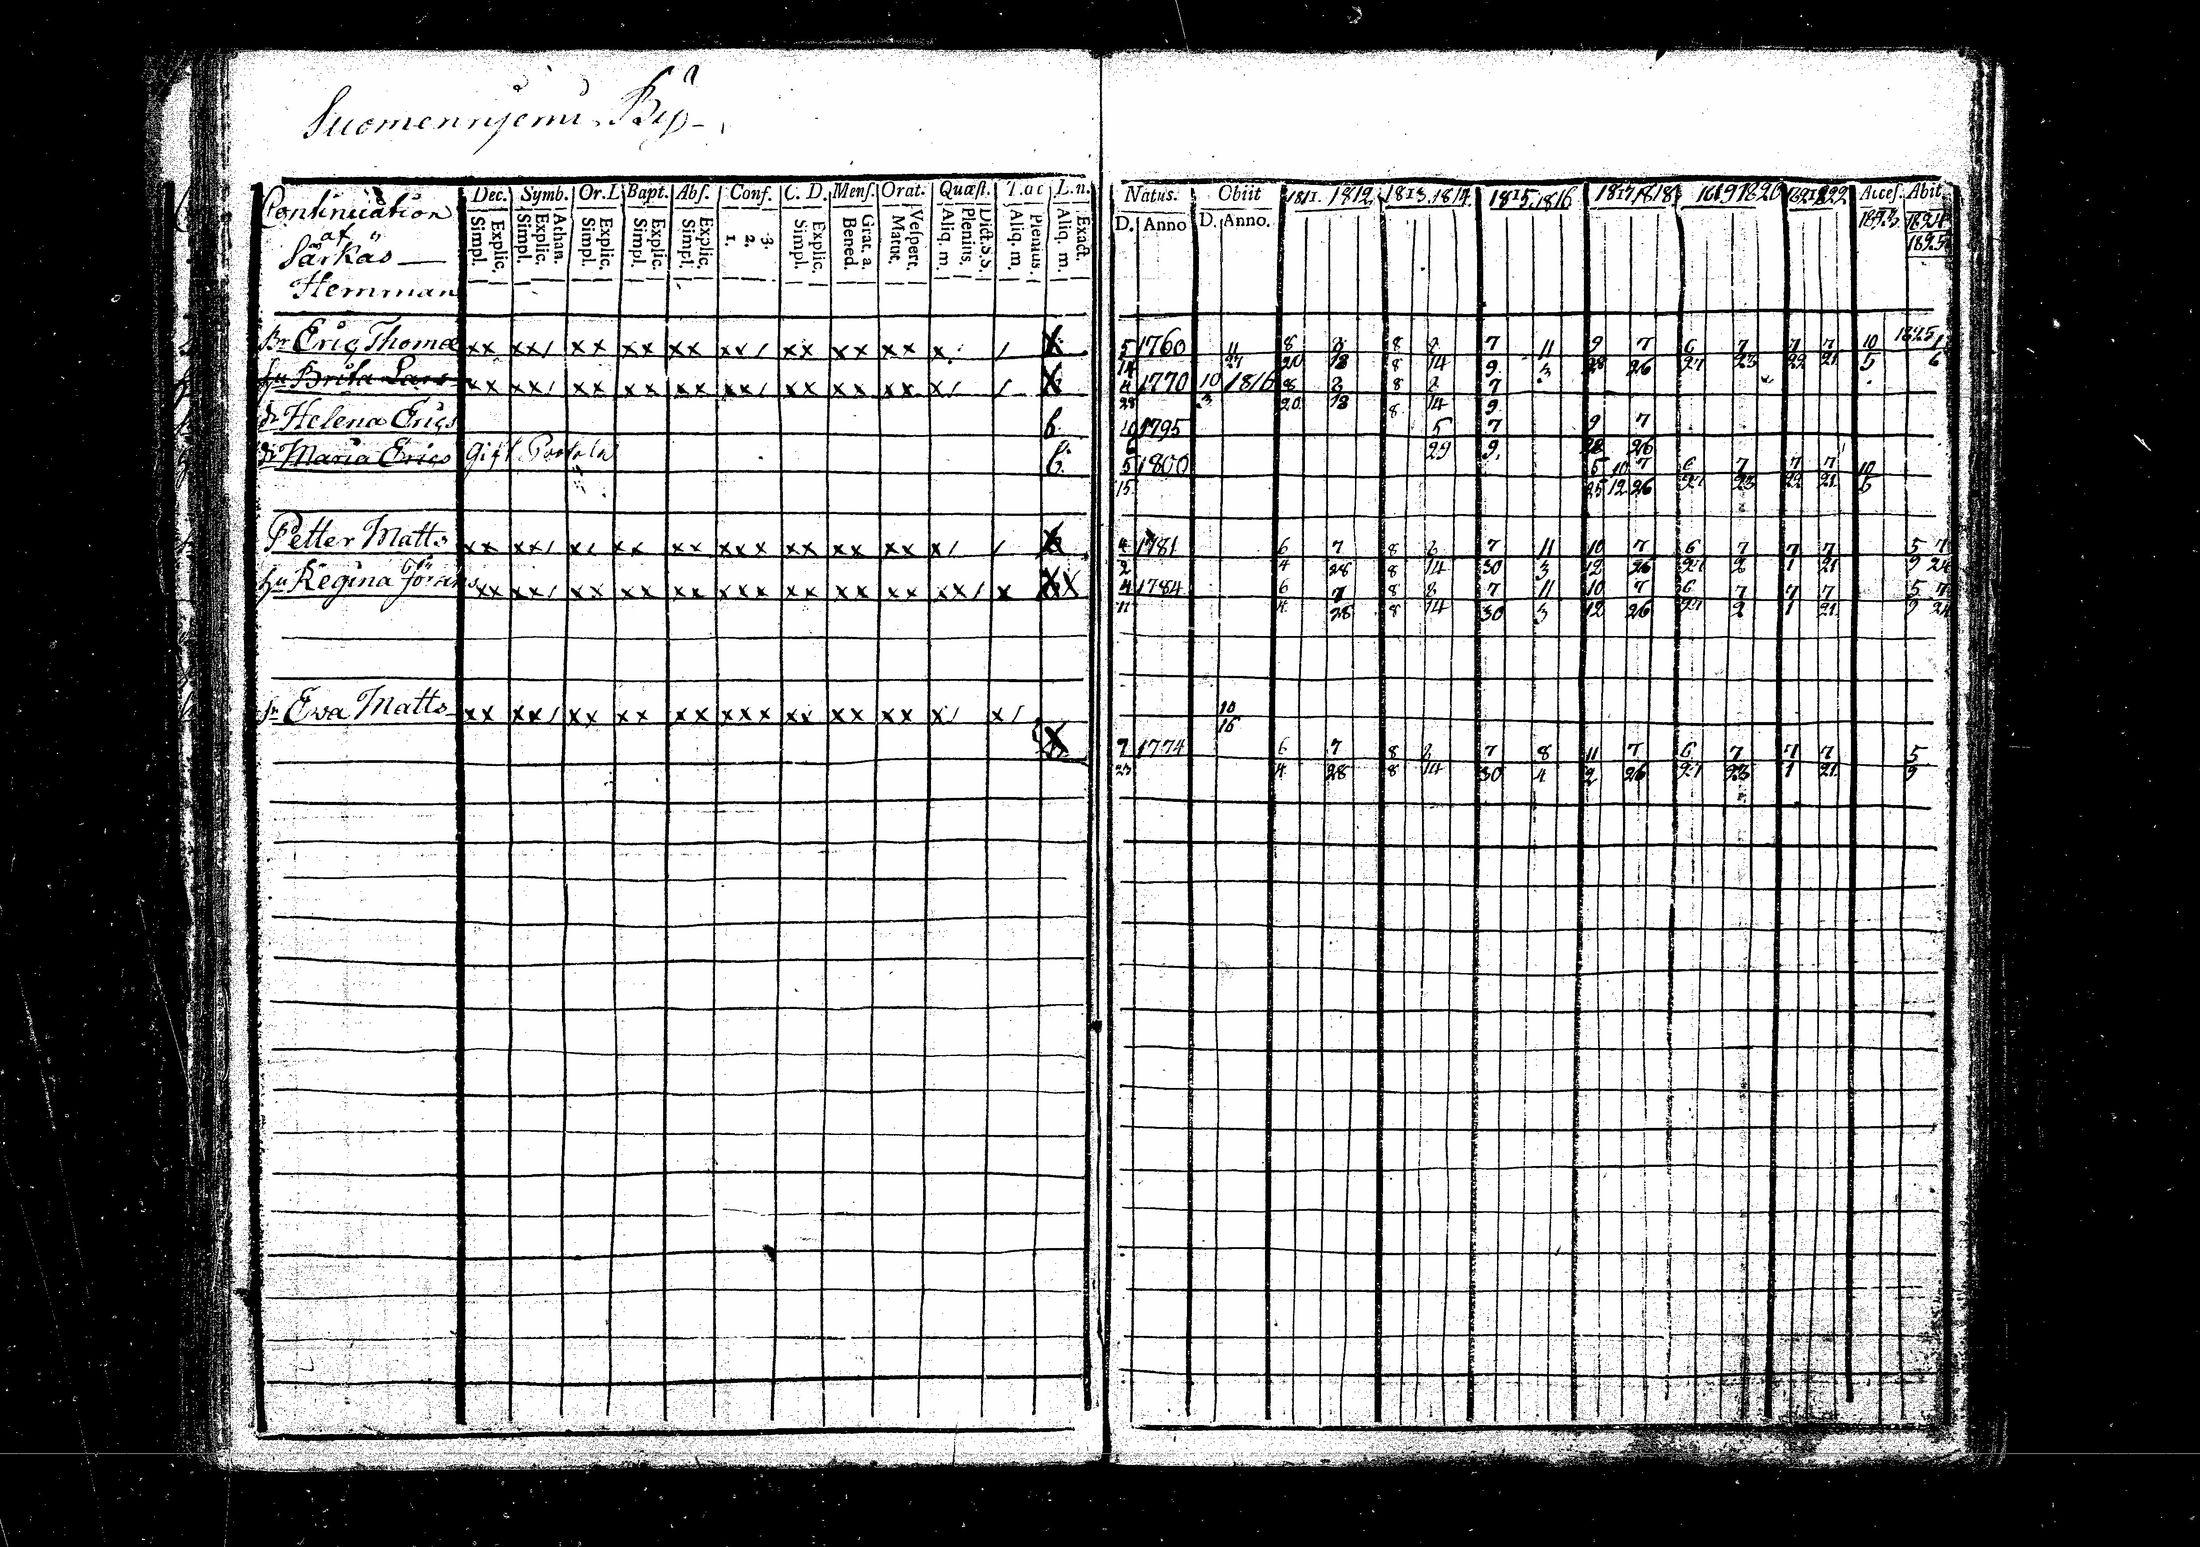 Suomenniemi By
Continuation
af
Särkas
Hemman
Dec. Symb. Or. L Bapt. Abſ. Conf. C. D. Menſ. Orat. Quæſt. T. ac L. n.
Explic. Simpl. Athan. Explic. Simpl. Explic. Simpl. Explic. Simpl. Explic. Simpl. 3. 2. 1. Explic. Simpl. Grat. a. Bened. Veſpert. Matut. Dict. S. S. Plenius. Aliq. m. Plenius. Aliq. m. Exact. Aliq. m.
Natus. Obiit 1811. 1812. 1813. 1814. 1815. 1816 1817. 1818 1819 1820 1821 1822 Acceſ. Abit.
D. Anno D. Anno. 1823 1824
1825
Br Eric Thomæ xx xx/ xx xx xx xx/ xx xx xx x / x 5 1760 11 8 2 8 2 7 11 9 7 6 7 7 7 10 1825 1
14 27 20 13 8 14 9 3 28 26 27 23 22 21 5 6
hu Brita Lars xx xx/ xx xx xx xx/ xx xx xx x/ / x 4 1770 10 1816 8 2 8 2 7
28 3 20 13 8 14 9
dr Helena Erics b 10 1795 5 7 9 7
6 29 9 28 26
dr Maria Erics gift b 5 1800 5 10 7 6 7 7 7 10
15 25 12 26 27 23 22 21 5
Petter Matts xx xx/ xx xx xx xxx xx xx xx x/ / x 4 1781 6 7 8 2 7 11 10 7 6 7 7 7 5 7
2 4 28 8 14 30 3 12 26 27 2 1 21 9 24
hu Regina Görans xx xx/ xx xx xx xxx xx xx xx xx/ x xx 4 1784 6 7 8 2 7 11 10 7 6 7 7 7 5 7
11 4 28 8 14 30 3 12 26 27 2 1 21 9 24
Ewa Matts xx xx/ xx xx xx xxx xx xx xx x/ x/ 10
16
x 7 1774 6 7 8 2 7 8 11 7 6 7 7 7 5
23 4 28 8 14 30 4 2 26 27 23 1 21 9